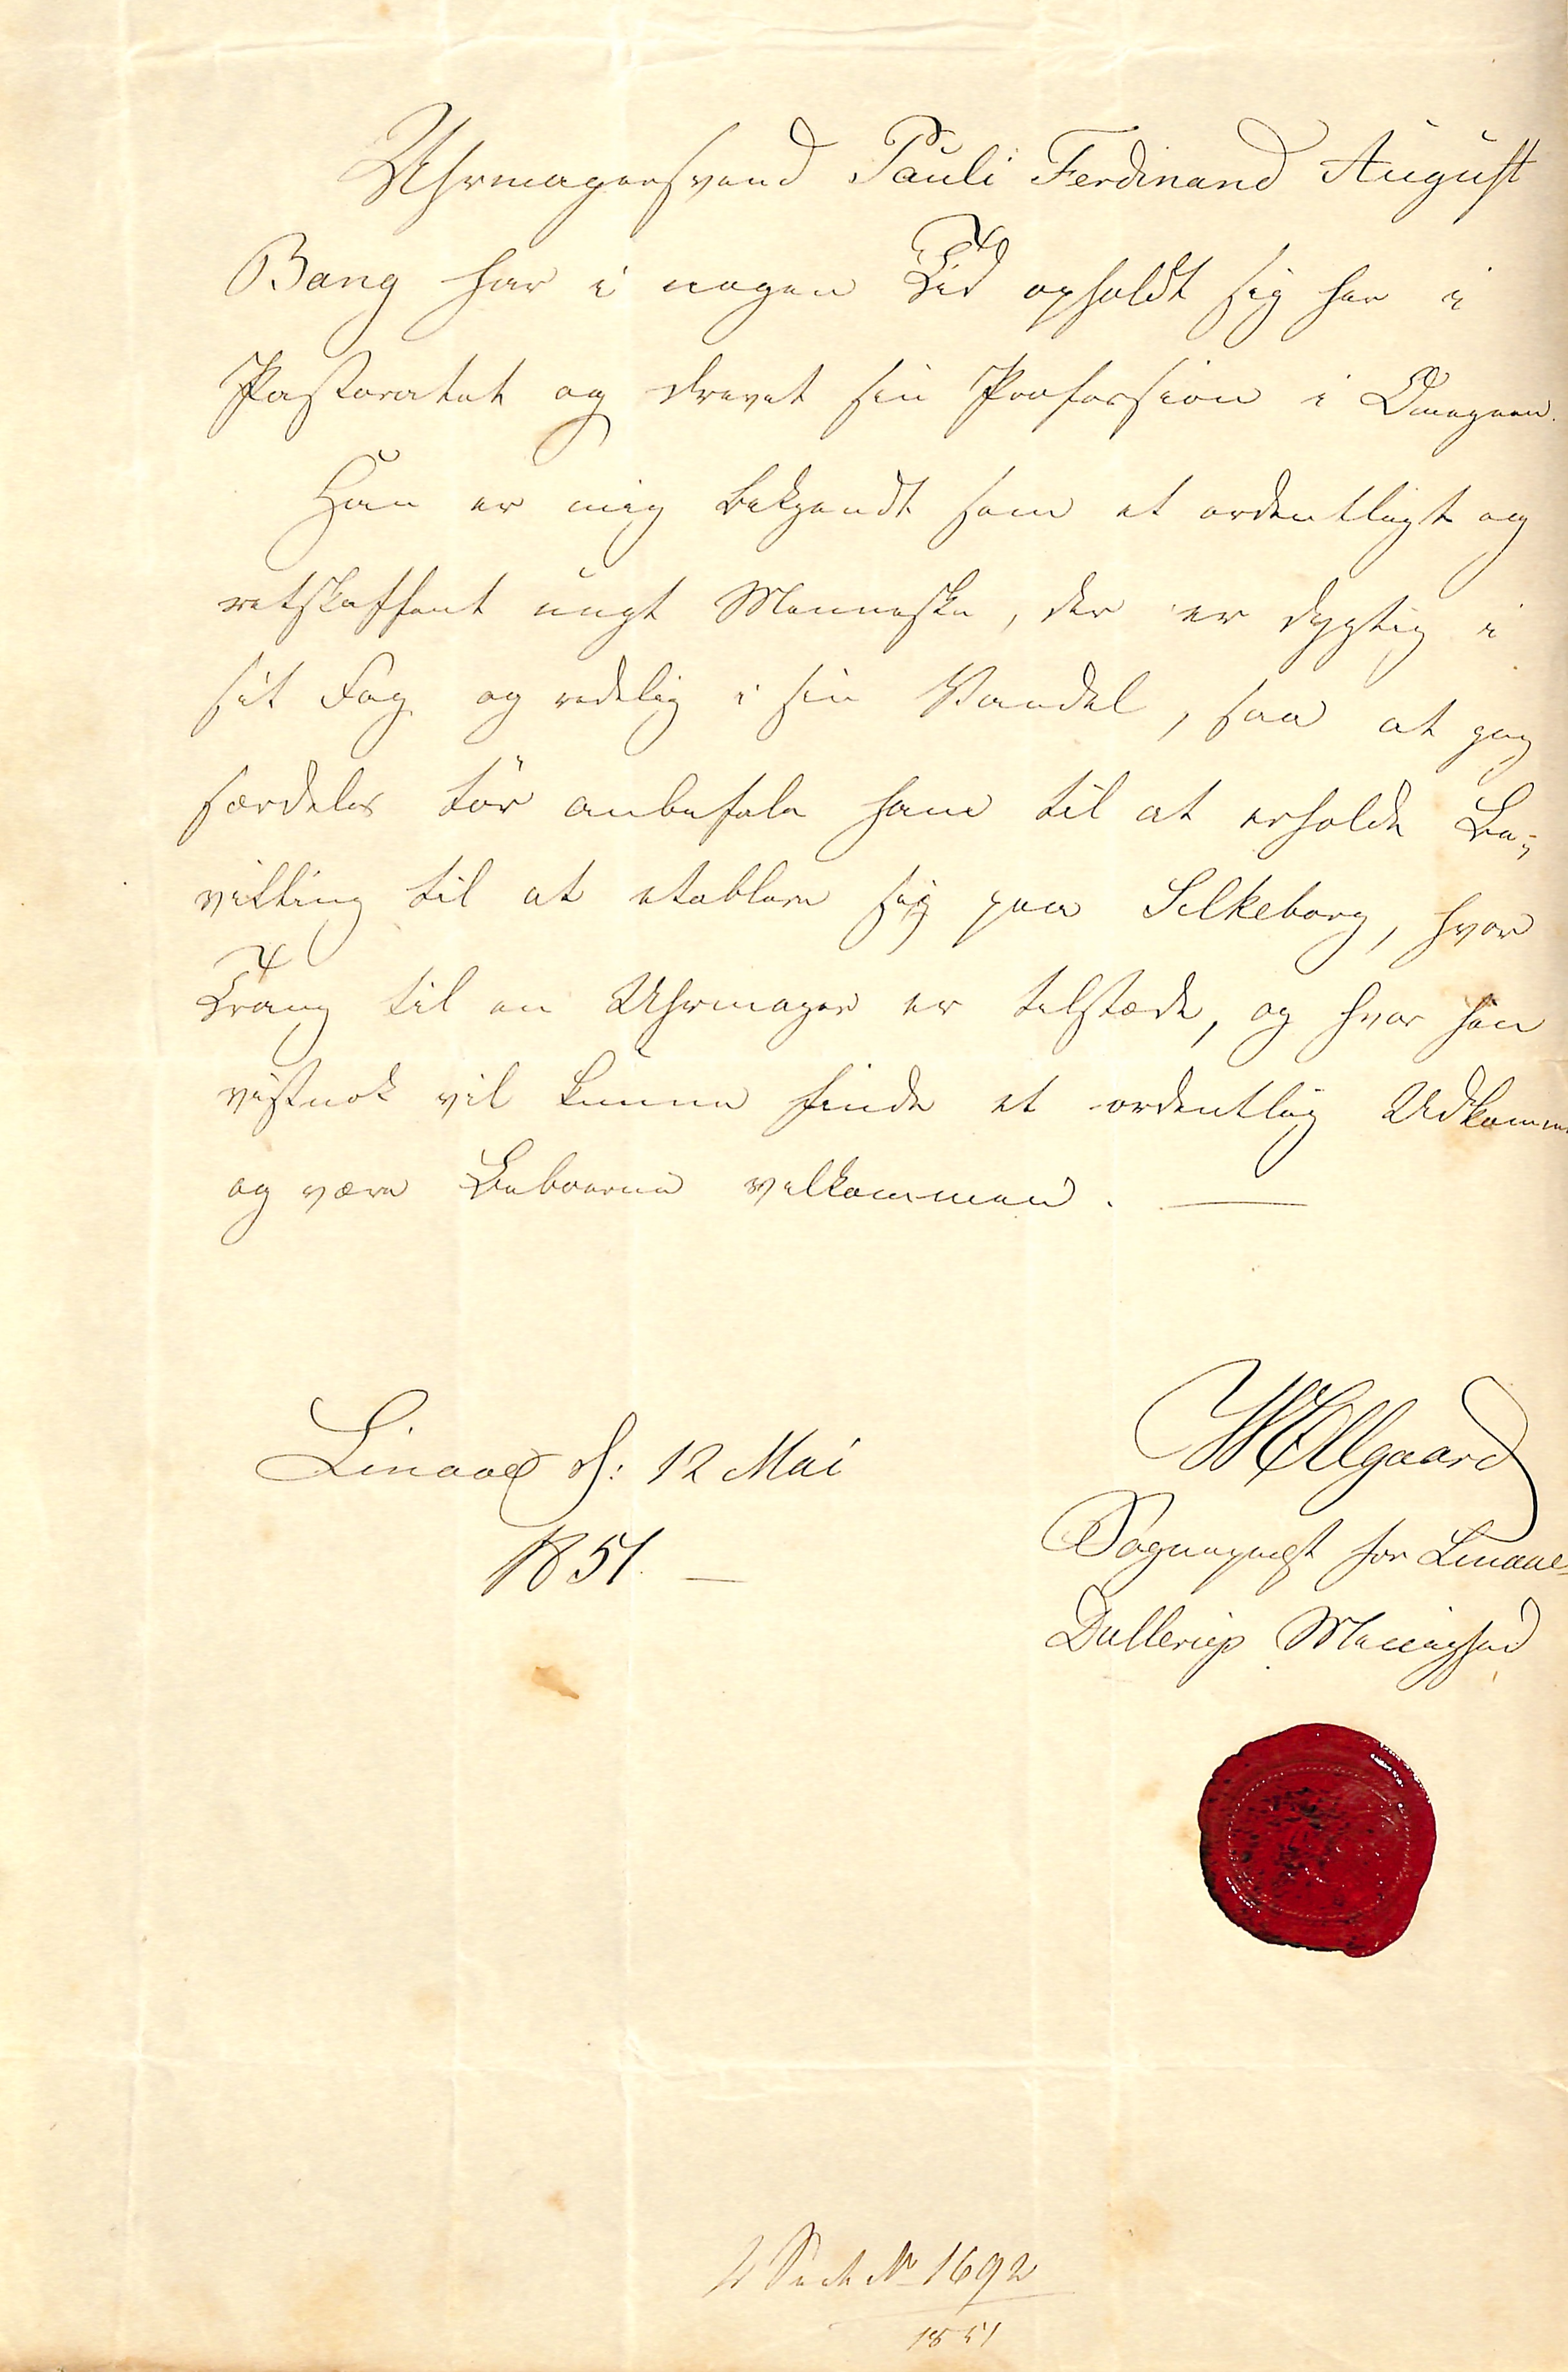 Uhrmagersvend Pauli Ferdinand August
Bang har i nogen Tid opholdt sig her i
Pastoratet og drevet sin Profession i Omegnen.
Han er mig bekjendt som et ordentligt og
retskaffent ungt Menneske, der er dygtig i
sit Fag og redelig i sin Vandel, saa at jeg
særdeles tör anbefale ham til at erholde Be-
villing til at etablere sig paa Silkeborg, hvor
Trang til en Uhrmager er tilstæde, og hvor han
vistnok vil kunne finde et ordentlig Udkomme
og være Beboerne velkommen. —
Linaae d: 12 Mai
1851. —
Ellgaard
Sognepræst for Linaae-
Dallerup Menighed
1692
1851